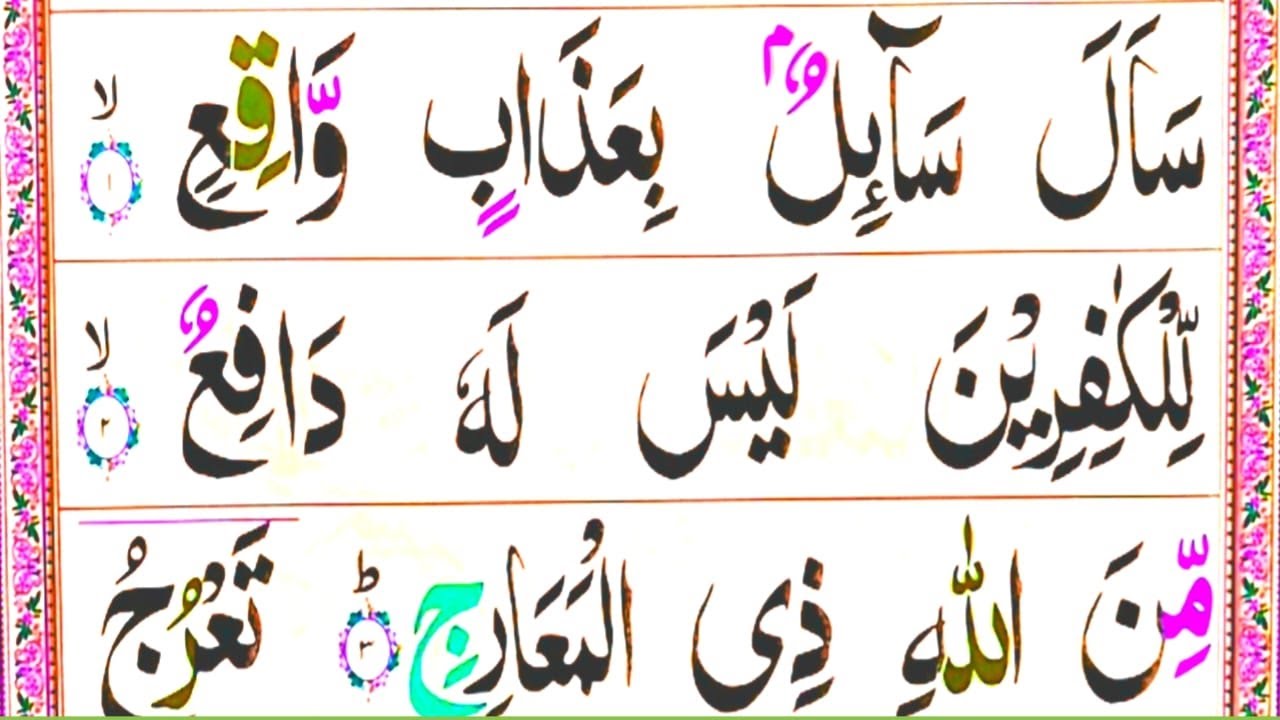 سَاَلَ سَآئِلٌۢ بِعَذَابٍ وَّاقِعٍ ۙ‏ ﴿۱﴾
لِّلْكٰفِرِيْنَ لَيْسَ لَهٗ دَافِعٌ ۙ‏ ﴿۲﴾
مِّنَ اللّٰهِ ذِى الْمَعَارِجِ ؕ‏ ﴿۳﴾ تَعْرُجُ